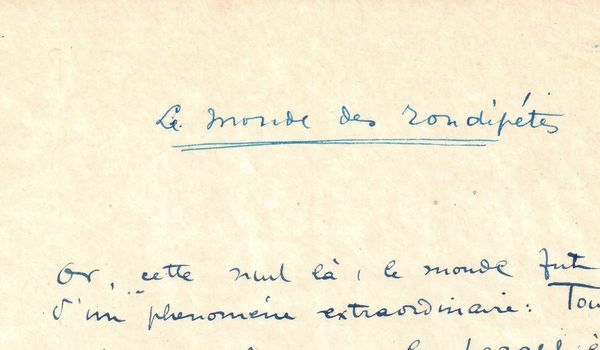 Le Monde des rondipètes
Or, cette nuit là, le monde fut
d'un phenomène extraordinaire: Tou